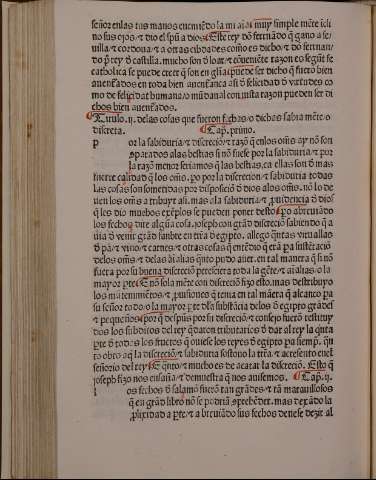 señor en las tus manos encomiẽdo la mi aĩa: muy simple mẽte icli
no sus ojos / τ dio el spũ a dios. Este rey dõ fernãdo q̃ gano a se/
uilla / τ cordoua / τ a otras cibdades como es dicho / τ dõ fernan/
do p̃ rey d̃ castilla. mucho son d̃ loar / τ cõueniẽte razon es segũt fe
catholica se puede creer q̃ son en gl̃ia: puede ser dicho q̃ fuerõ bien
auenturados en toda bien auenturãça asi d̃ felicidad d̃ virtudes co
mo de felicidad humana / o mũdanal con iusta razon pueden ser di
chos bien auenturados.
Titulo .ij. delas cosas que fueron fechas / o dichas sabia mẽte / o
discreta. Cap. primo.
por la sabiduria / τ discrecion / τ razõ q̃ en los om̃s ay nõ son
separados alas bestias si nõ fuese por la sabiduria / τ por
la razõ menor seriamos q̃ las bestias. ca ellas son d̃ mas
fuerte calidad q̃ los om̃s. po por la discrecion / τ sabiduria todas
las cosas son sometidas por disposiciõ d̃ dios alos om̃s. nõ lo de
uen los om̃s a tribuyr asi. mas a la sabiduria / τ prouidencia d̃ dios
q̃ les dio muchos exẽplos se pueden poner desto. po abreuiãdo
los fechos dire algũa cosa. Joseph con grãd discreciõ sabiendo q̃ a
uia d̃ venir grãd fanbre en trr̃a de egipto. allego q̃ntas vituallas
d̃ pã / τ vino / τ carnes / τ otras cosas q̃ entẽdio q̃ erã pa sustẽtaciõ
delos om̃s / τ delas aĩalias q̃nto pudo auer. en tal manera q̃ si nõ
fuera por su buena discreciõ peresciera toda la gẽte / τ aĩalias / o la
mayor pte. Enõ sola mẽte con discreciõ fizo esto. mas destribuyo
los mãtenimiẽtos / τ prouisiones q̃ tenia en tal mãera q̃ alcanço pa
su señor todo / o la mayor pte dela substãcia delos d̃ egipto grãdes
τ pequeños. por q̃ despues por su discreciõ / τ consejo fuerõ restituy
dos los subditos del rey q̃ daron tributarios d̃ dar al rey la q̃nta
pte d̃ todos los fructos q̃ ouiese los reyes d̃ egipto pa siemp̃. q̃n
to obro aq̃ la discreciõ / τ sabiduria sostouo la trr̃a / τ acresento enel
señorio del rey. Eq̃nto / τ mucho es de acatar la discreciõ. Esto q̃
joseph fizo nos enseña / τ demuestra q̃ nos auisemos. Cap. ij.
los fechos d̃ salamõ fuerõ tan grãdes / τ tã marauillosos
q̃ en grãd libro nõ se podriã cõprehẽder. mas dexãdo la
prolixidad a pte / τ a breuiãdo sus fechos de uese dezir al